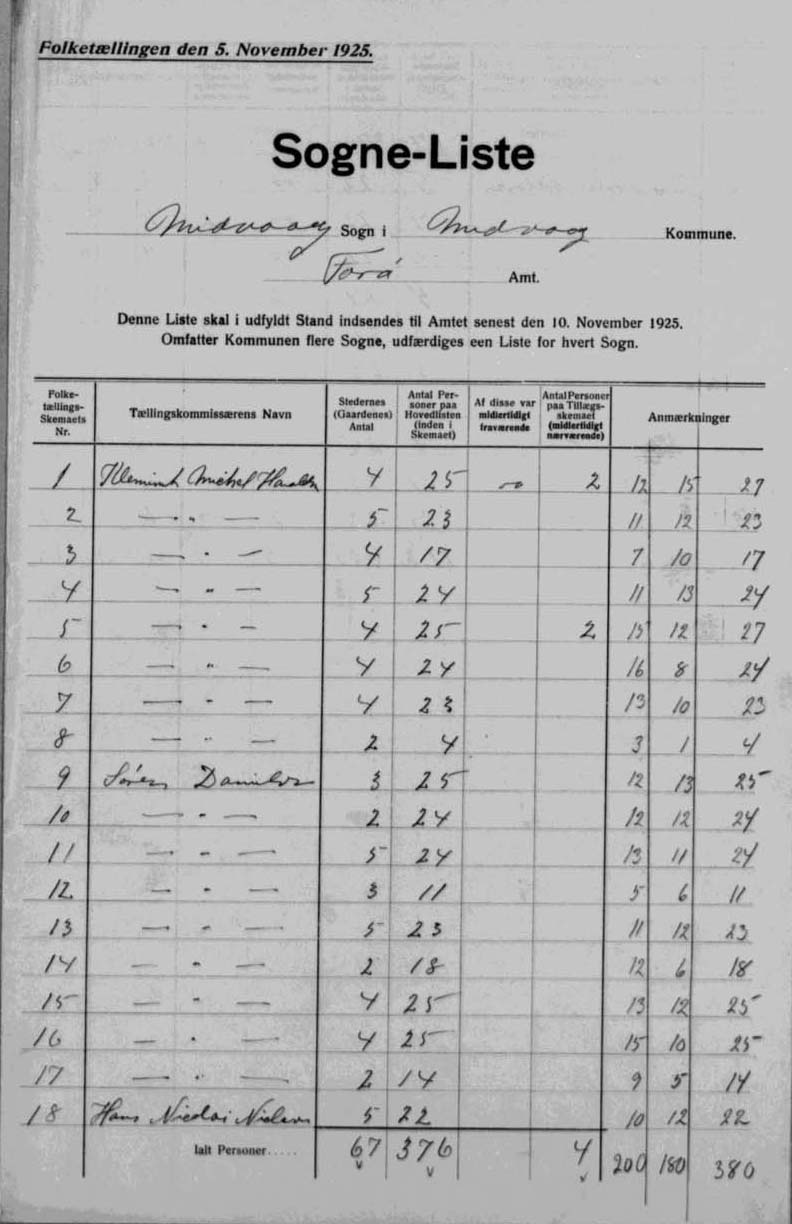 Folketællingen den 5. November 1925.
Sogne-Liste
Midvaag Sogn i Midvaag Kommune.
Færø Amt.
Denne Liste skal i udfyldt Stand indsendes til Amtet senest den 10. November 1925.
Omfatter Kommunen flere Sogne, udfærdiges een Liste for hvert Sogn.
Folke-tællings-Skemaets Nr. Tællingskommissærens Navn Stedernes (Gaardenes) Antal Antal Per-soner paa Hovedlisten (inden i Skemaet) Af disse var midlertidigt fraværende Antal Personer paa Tillægs-skemaet (midlertidigt nærværende) Anmærkninger
1 Klemint Michel 4 25 2 12 15 27
2 — " — 5 23 11 12 23
3 — " — 4 17 7 10 17
4 — " — 5 24 11 13 24
5 — " — 4 25 2 15 12 27
6 — " — 4 24 16 8 24
7 — " — 4 23 13 10 23
8 — " — 2 4 3 1 4
9 Sören Danielsen 3 25 12 13 25
10 — " — 2 24 12 12 24
11 — " — 5 24 13 11 24
12 — " — 3 11 5 6 11
13 — " — 5 23 11 12 23
14 — " — 2 18 12 6 18
15 — " — 4 25 13 12 25
16 — " — 4 25 15 10 25
17 — " — 2 14 9 5 14
18 Hans Nicolai Nielsen 5 22 10 12 22
Ialt Personer..... 67 376 4 200 180 380